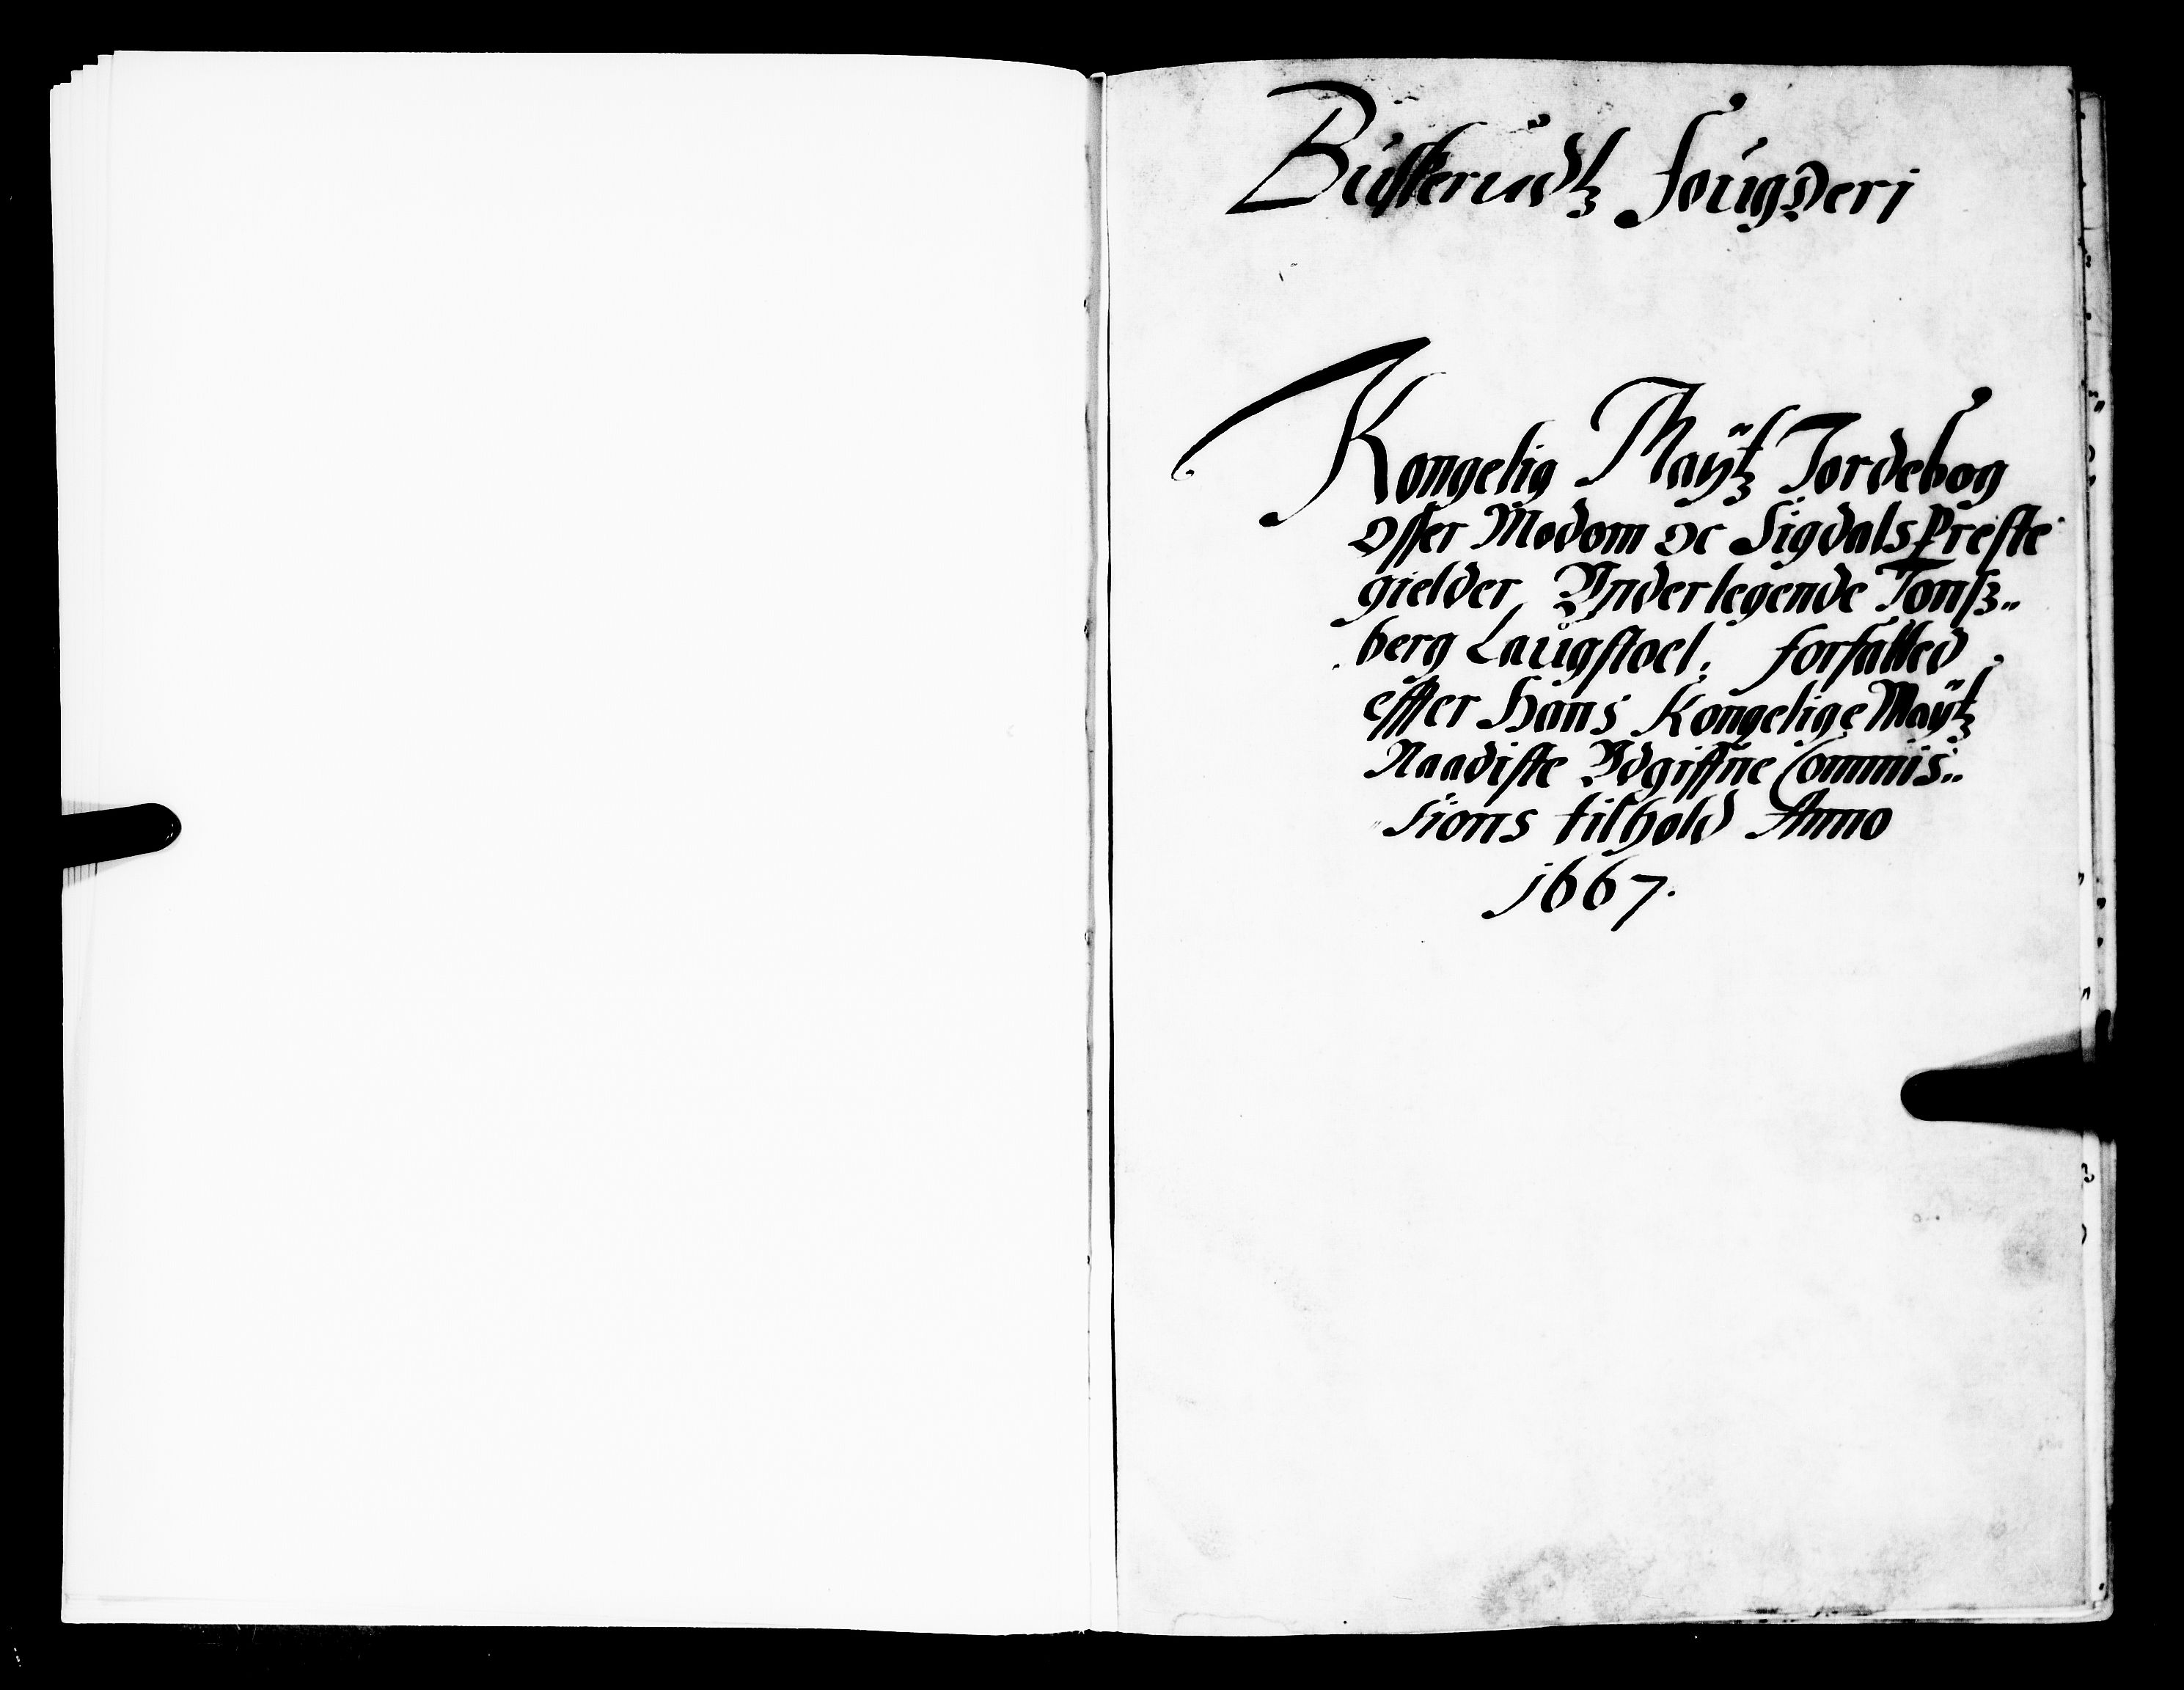 Buskerudtz fougderj
Kongelig Maÿtz Jordebog
offer Modom oc Sigdals Preste
gielder Vnderlegende Tonsz„
berg Laugstoel; forfatted
effter Hans Kongelige Maÿtz
Naadiste Vdgiffne Commis„
sions tilhold Anno
1667.